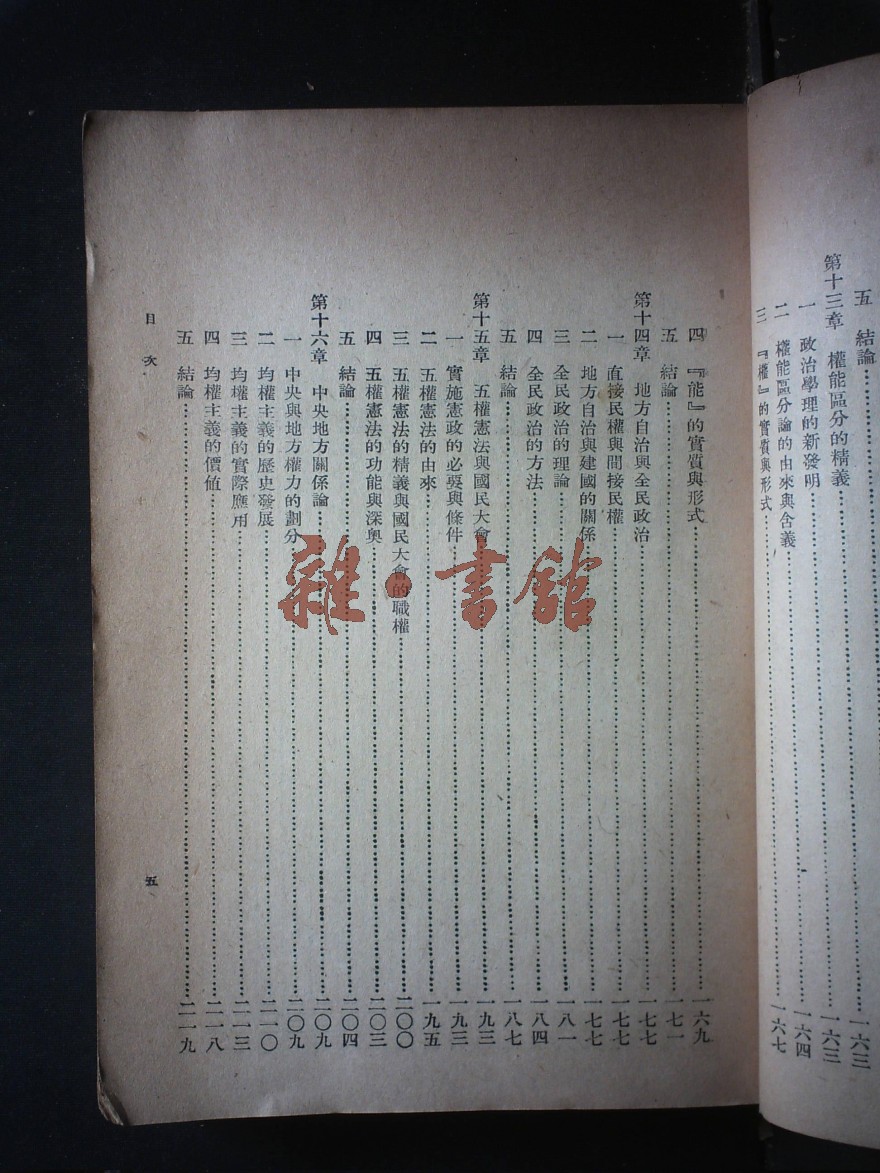 五 結論……一六三
第十三章 權能區分的精義……一六三
一 政治學理的新發明……一六四
二 權能區分論的由來與含義……一六七
三 『權』的實質與形式……
四 『能』的實質與形式……一六九
五 結論……一七一
第十四章 地方自治與全民政治……一七七
一 直接民權與間接民權……一七七
二 地方自治與建國的關係……一七七
三 全民政治的理論……一八一
四 全民政治的方法……一八四
五 結論……一八七
第十五章 五權憲法與國民大會……一九三
一 實施憲政的必要與條件……一九三
二 五權憲法的由來……一九五
三 五權憲法的精義與國民大會的職權……二〇〇
四 五權憲法的功能與深奧……二〇三
五 結論……二〇四
第十六章 中央地方關係論……二〇九
一 中央與地方權力的劃分……二〇九
二 均權主義的歷史發展……二一〇
三 均權主義的實際應用……二一三
四 均權主義的價値……二一八
五 結論……二一九
目次
五
雜·書館